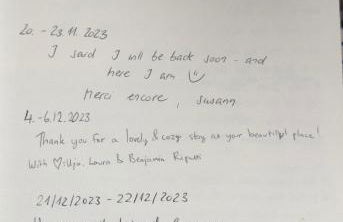 20. - 23.11.2023
I said I will be back soon - and
here I am ☺
Merci encore, Susann
4.-6.12.2023
Thank you for a lovely & cozy stay at your beautiful place!
With ♡: Laura & Benjamin
21/12/2023 - 22/12/2023